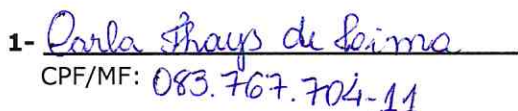 1- Carla Thays de Loima
CPF/MF: 083.767.704-11